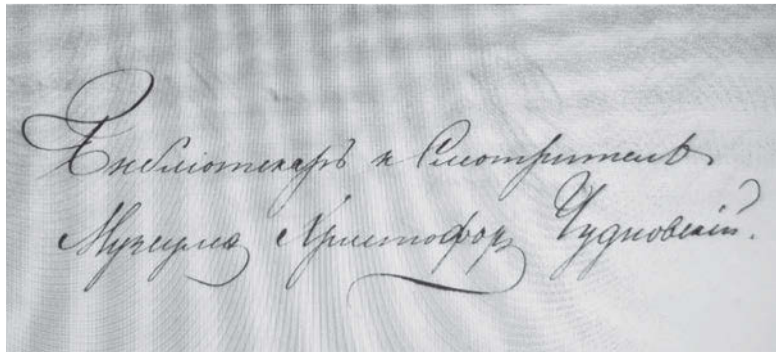 Библіотекарь и Смотритель
Музеума Христофор Чудновскій.